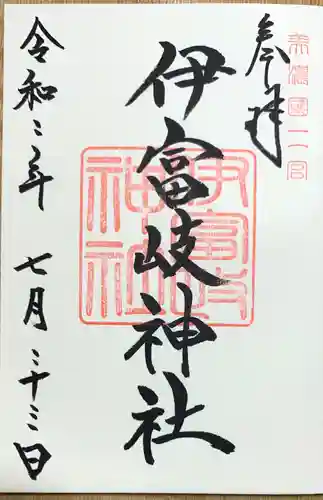 美濃國二宮
奉拝
伊富岐神社
伊富岐神社
令和二年 七月 三十三日